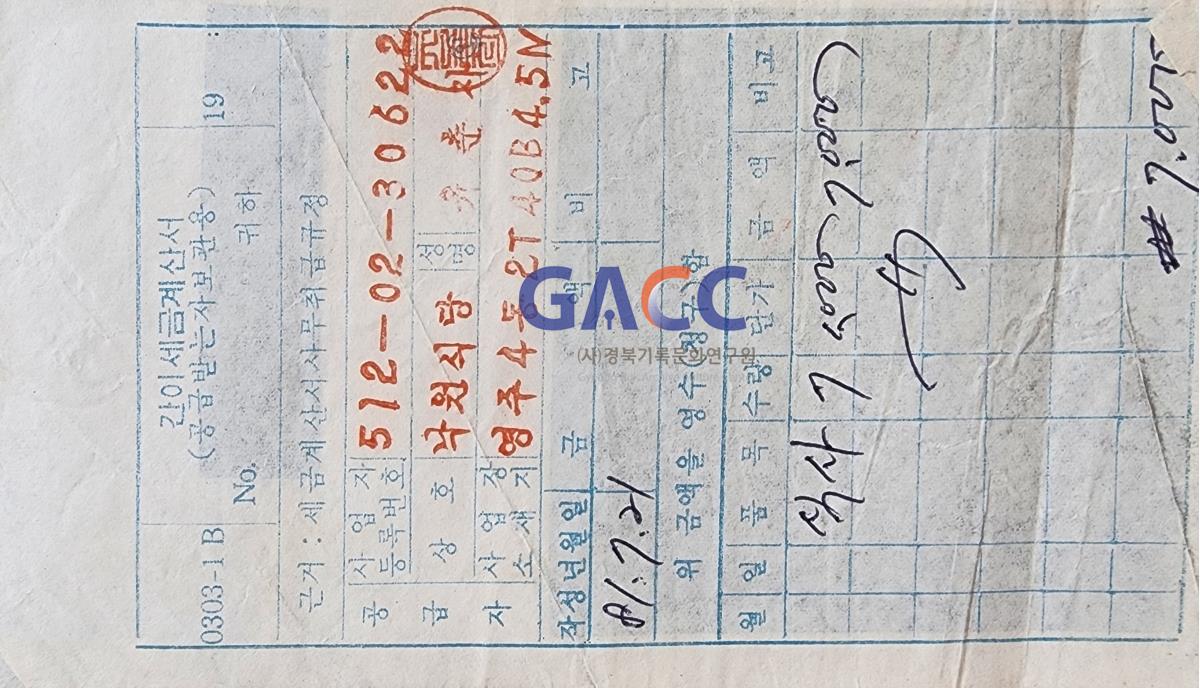 0303-1 B
간이세금계산서
(공급받는자보관용)
19 :
No.
귀하
근거 : 세금계산서사무취급규정
공급자
사업자등록번호
512-02-30622
상호
낙원식당
성명
사업장소재지
영주4동 2T40B4,5N
작성년월일
금액
비고
81.7.21
위 금액을 영수(청구)함
월 일 품목 수량 단가 금액 비고
식사 7 1,000 7,000
# 7,000
GACC
(사)경북기록문화연구원